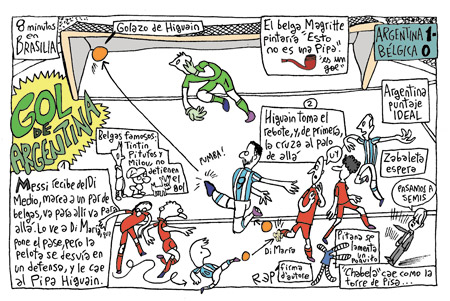 8 minutos
en
BRASILIA
Golazo de Higuaín
El belga Magritte
pintaría "Esto
no es una Pipa".
"es un
gol"
ARGENTINA 1-
BÉLGICA 0
GOL
DE
ARGENTINA
Belgas famosos:
Tintin
Pitufos y
Milou no
detienen
el
gol
PUMBA!
2
Higuaín toma el
rebote, y, de primera,
la cruza al palo
de allá
Argentina
puntaje
IDEAL
Zabaleta
espera
PASAMOS A
SEMIS
Messi recibe del Di
Medio, marea a un par de
belgas, va para allí va para
allá. Lo ve a Di María
pone el pase, pero la
pelota se desvía en
un defensa, y le cae
al Pipa Higuaín.
Di María
RAP
firma
d'autore
Pitana se
lamenta
un
poquito
"Chabela" cae como la
torre de Pisa...